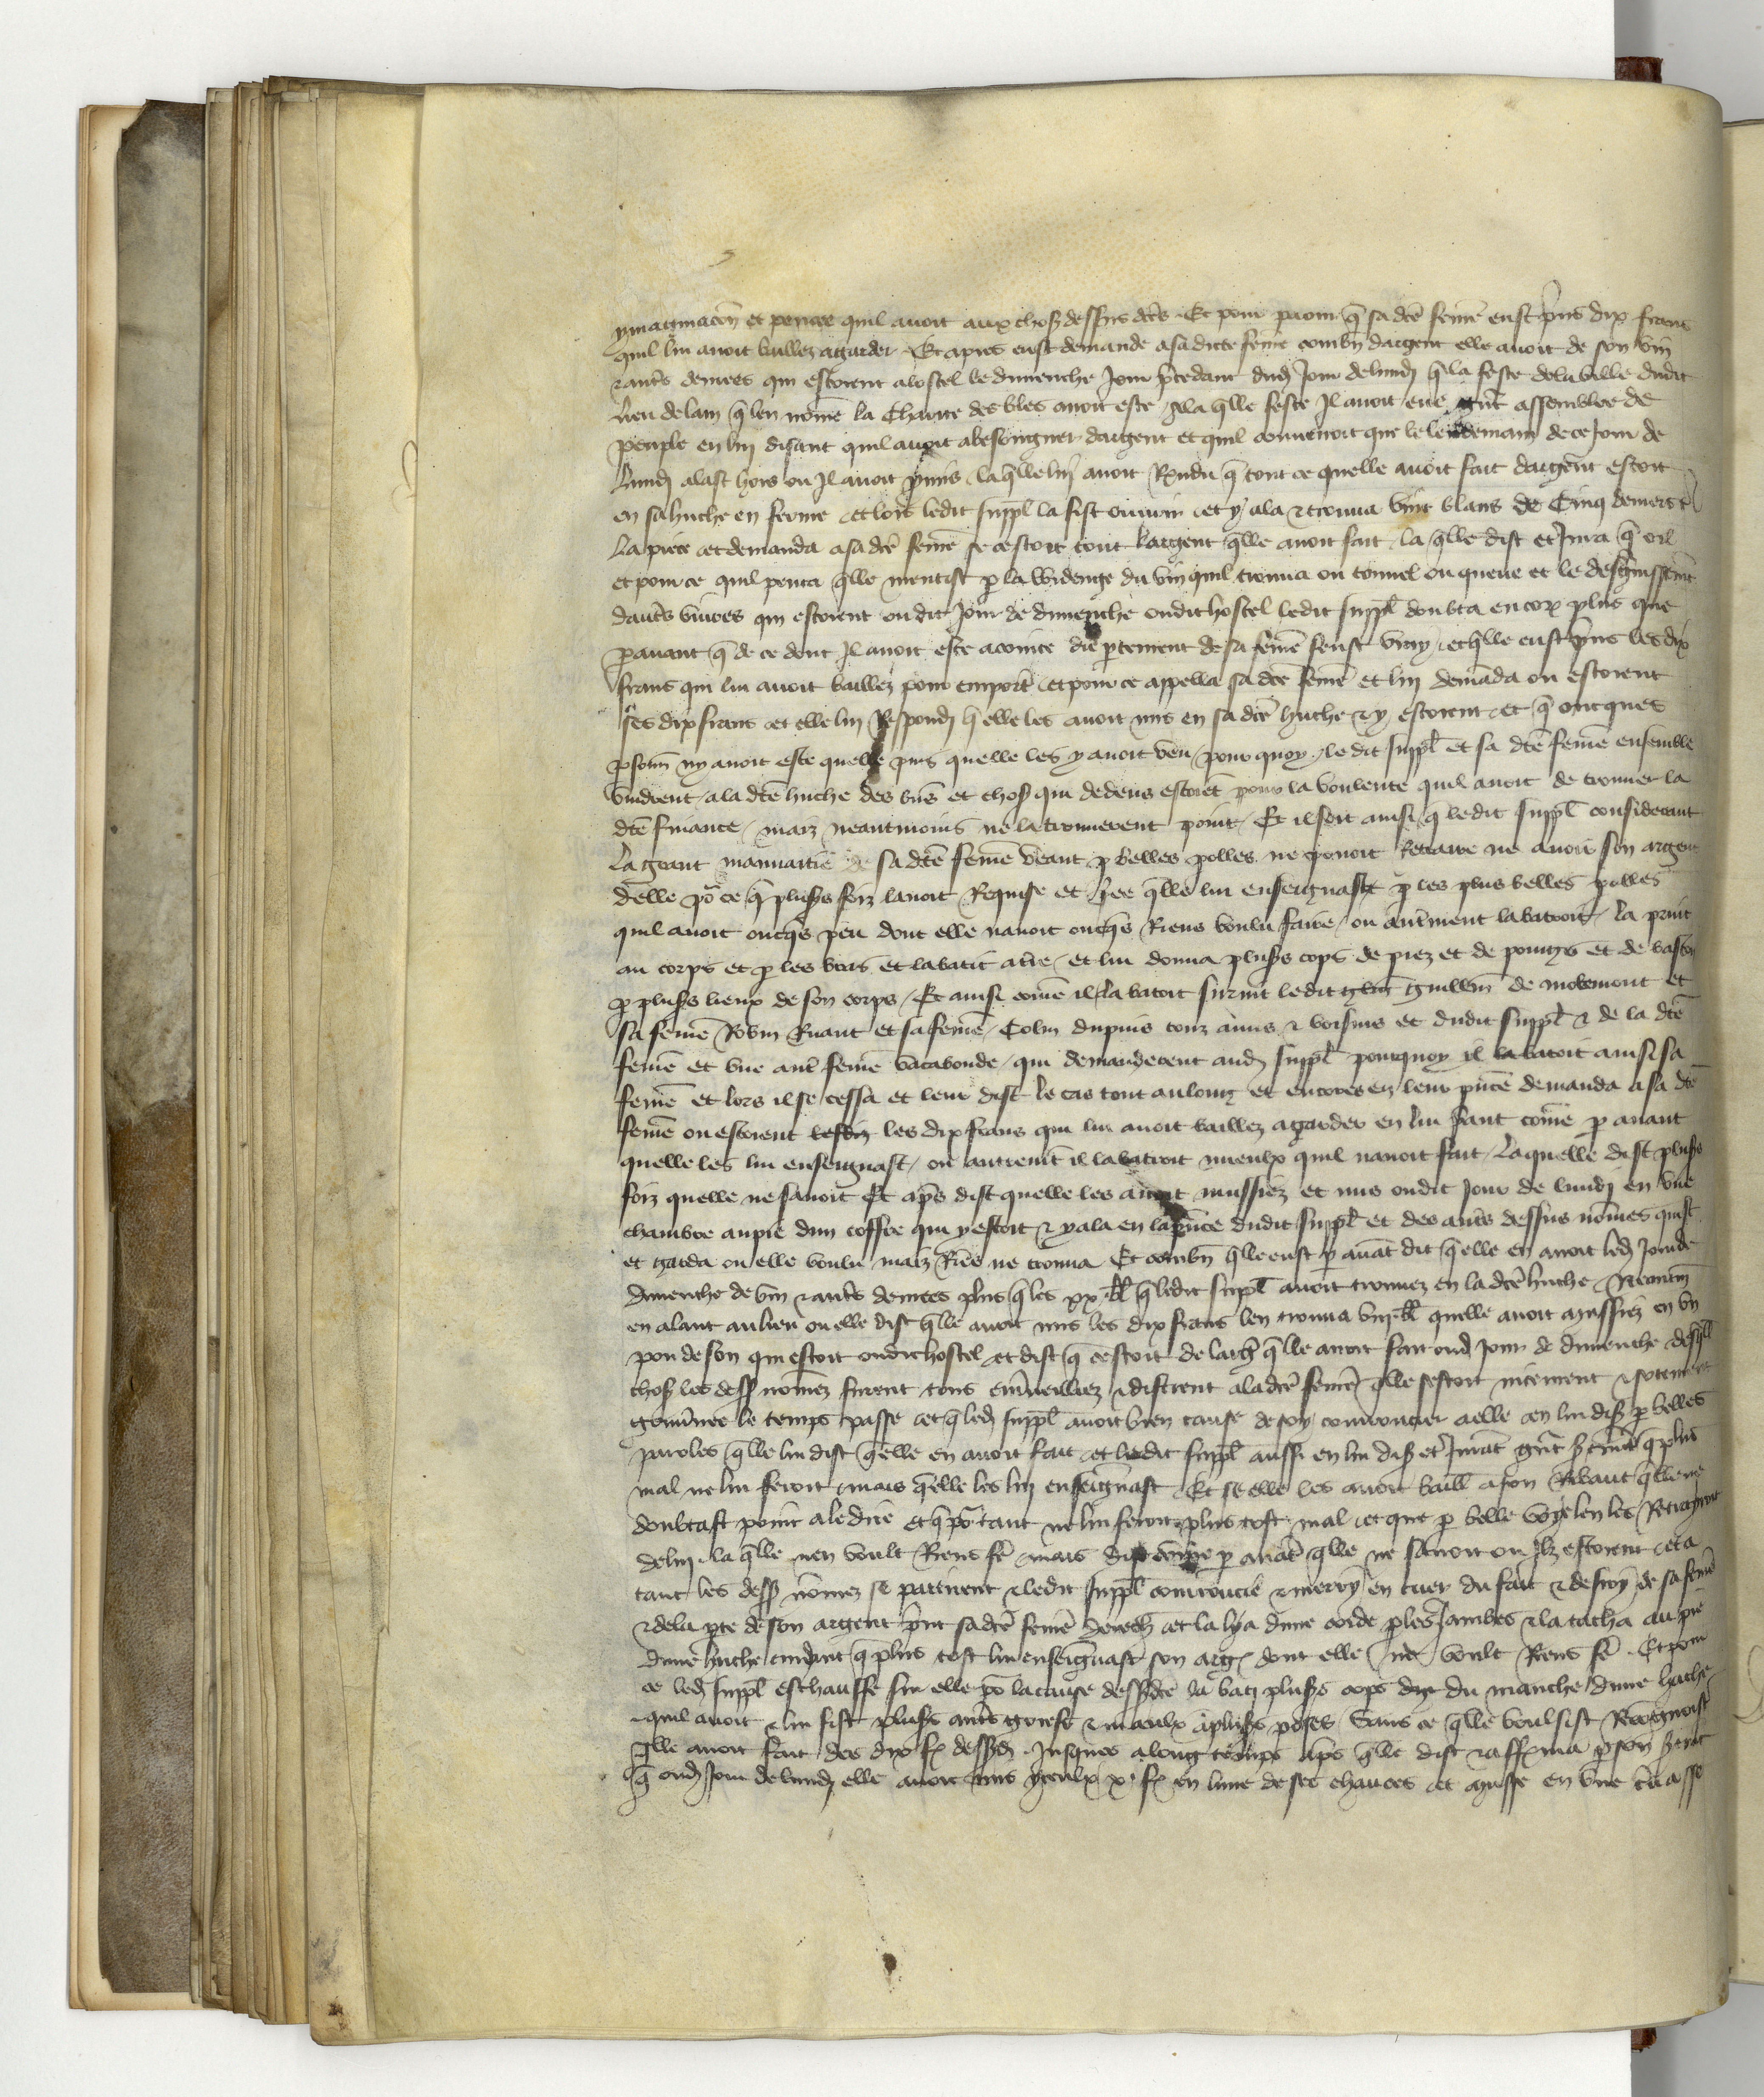 ymaginacōn et pensee quil avoit aux chos dessus dcēs . Et pour savoir q̄ sa dcē femē eust prins dix frans
quil lui avoit baillez a garder . Et apres eust demande a sa dicte femē combn̄ dargent elle avoit de son vin
& autres denrees qui estoient a lostel le dimenche Jour pcedant dud Jour de lundj q̄ la feste de la ville dudit
lieu de q̄ len nōme la Charite des bles avoit este / a la q̄lle feste Il avoit eue gnt assemblee de
peuple en lui disant quil avoit abesoingner dargent et quil convenoit que le lendemain de ce Jour de
lundj alast hors ou Il avoit pmis / la q̄lle lui avoit Rendu q̄ tout ce quelle avoit fait dargent estoit
en sa huche en ferme / et lors ledit suppl la fist ouvrir / et y ala & trouva vint blans de Cinq deniers t
la piece / et demanda a sa dcē femē se cestoit tout largent q̄lle avoit fait / la q̄lle dist et Jura q̄ oil
et pour ce quil pensa q̄lle mentist p la widenge du vin quil trouva ou tonnel ou queue et le
dautres vivres qui estoient ou dit Jour de dimenche oudit hostel ledit suppl doubta encor plus que
pavant q̄ de ce dont Il avoit este acointe du ptement de sa femē feust vray / et q̄lle eust prins les dix
frans qui lui avoit baillez pour emport / et pour ce appella sa dcē femē et lui demāda ou estoient
ses dix frans / et elle lui Respondj q̄ elle les avoit mis en sa dcē huche & y estoient / et q̄ oncques
psonne ny avoit este quelle puis quelle les y avoit veu / pour quoy / ledit suppl et sa dcē femē ensemble
vindrent / a la dcē huche des et chos qui dedens estoiēt pour la voulente quil avoit de trouver la
dcē finance / maiz neantmoins ne la trouverent point / Et il soit ainsi q̄ ledit suppl considerant
la grant mauvaitie de sa dcē femē veant p belles polles ne povoit Retraire ne avoir son argent
delle po ce q̄ pluss foiz lavoit Requise et q̄lle lui enseignast p les plus belles polles
quil avoit oncqs peu dont elle navoit oncqs Riens voulu faire / ou autrement la batroit / la print
au corps et p les bras et labatit a tre / et lui donna pluss cops de piez et de poings et de baston
p pluss lieux de son corps / Et ainsi cōme il la batoit survint ledit Guillm̄ de et
sa femē Robin Ruaut et sa femē / Colin dupuis touz amis & voisins et dudit suppl & de la dcē
femē et une autr femē vacabonde / qui demanderent aud suppl pourquoy il la batoit ainsi sa
femē et lors il se cessa et leur dist le cas tout au long et encores en leur pn̄ce demanda a sa dcē
femē ou estoient les dix frans qui lui avoit baillez a garder en lui pant cōme p avant
quelle les lui enseignast / ou autremt il la batroit mieulx quil navoit fait / laquelle dist pluss
foiz quelle ne savoit Et aps dist quelle les avoit mussiez et mis oudit Jour de lundj en une
chambre au pie dun coffre qui y estoit & y ala en la pn̄ce dudit suppl et des autrs dessus nōmes quist
et garda ou elle voulu maiz Riēs ne trouva Et combn̄ q̄lle eust p avāt dit q̄ elle en avoit led Jour de
dimenche de vin & autrs denrees plus q̄ les xx bl q̄ ledit suppl avoit trouvez en la dcē huche / Neantm̄
en alant au lieu ou elle dist q̄lle avoit mis les dix frans len trouva bl quelle avoit mussiez en un
pou de son qui estoit oudit hostel et dist q̄ cestoit de largt q̄lle avoit fait oud Jour de dimenche
chos les dess nōmez furent tous esmerveilliez & distrent a la dcē femē q̄lle sestoit &
gouvnee le temps passe / et q̄ led suppl avoit bien cause de soy courroucier a elle / en lui dis p belles
paroles q̄lle lui dist q̄ elle en avoit fait / et ledit suppl aussi en lui dis et Jurāt gnt sermēt q̄ plus
mal ne lui feroit / mais q̄elle les lui enseignast / Et se elle les avoit baill a son Ribaut q̄lle ne
doubtast point a le dire et q̄ po tant ne lui feroit plus tost mal / et que p belle voye len les Retrayroit
de lui / la q̄lle nen voult Riens fe / mais dist cōme p avāt q̄lle ne savoit ou Ilz estoient / et a
tant les dess nōmez se partirent & ledit suppl courroucie & en cuer du fait & de sa femē
& de la pte de son argent / print sa dcē femē et la lya dune corde p les Jambes & la tacha au pie
dune huche q̄ plus tost lui enseignast son arg dont elle ne voult Riens fe . Et pour
ce led suppl eschauffe sur elle po la cause dessdcē la batj pluss cops du manche dune hache
quil avoit & lui fist pluss autres griefs & maulx a pluss poses / Sans ce q̄lle voulsist Recongnoist
q̄lle avoit fait des dix fs dessdj . Jusques a long temps aps q̄lle dist & afferma p son sermt
q̄ oud Jour de lundj elle avoit mis Yceulx x fs en lune de ses chauces et musse en une